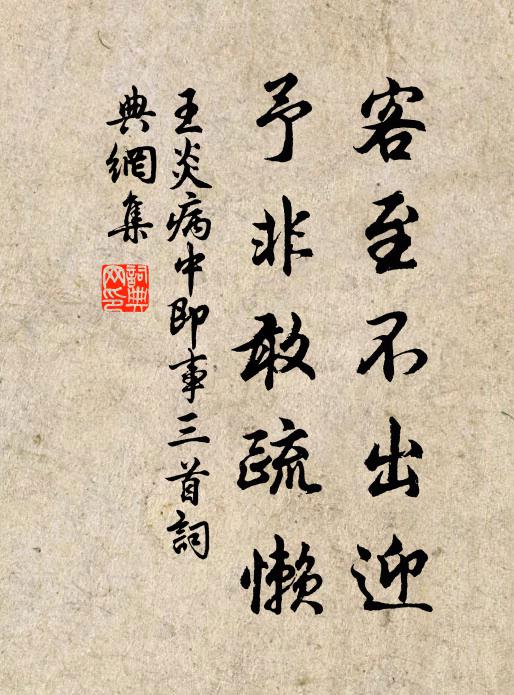 客至不出迎
予非敢疏懒
王炎病中即事三首詞
典網集
詞典
网印